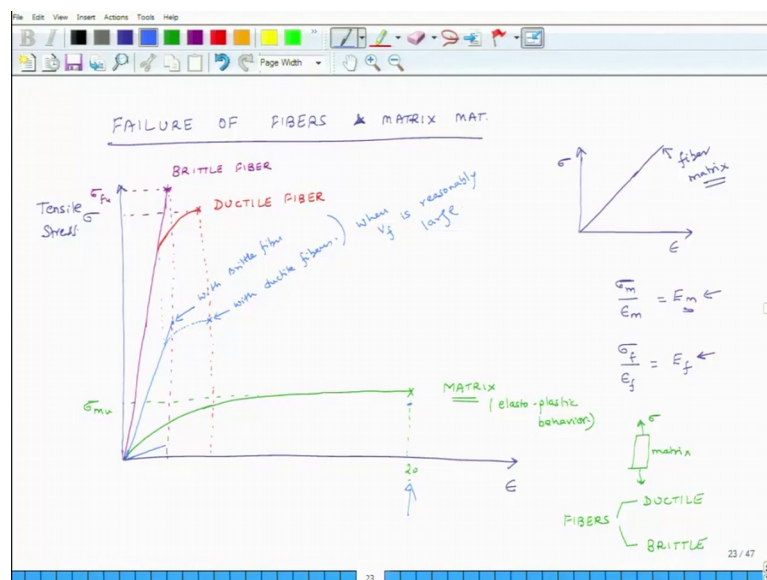 File Edit View Insert Actions Tools Help
B I
Page Width
FAILURE OF FIBERS & MATRIX MAT.
BRITTLE FIBER
σfu
DUCTILE FIBER
Tensile
Stress σ
with Brittle fiber
with ductile fibers.
) when
Vf is reasonably
large
σ
fiber
matrix
ϵ
σm/ϵm = Em ←
σf/ϵf = Ef ←
σmu
MATRIX
(elasto-plastic
behavior)
20
ϵ
σ
matrix
FIBERS
DUCTILE
BRITTLE
23 / 47
23